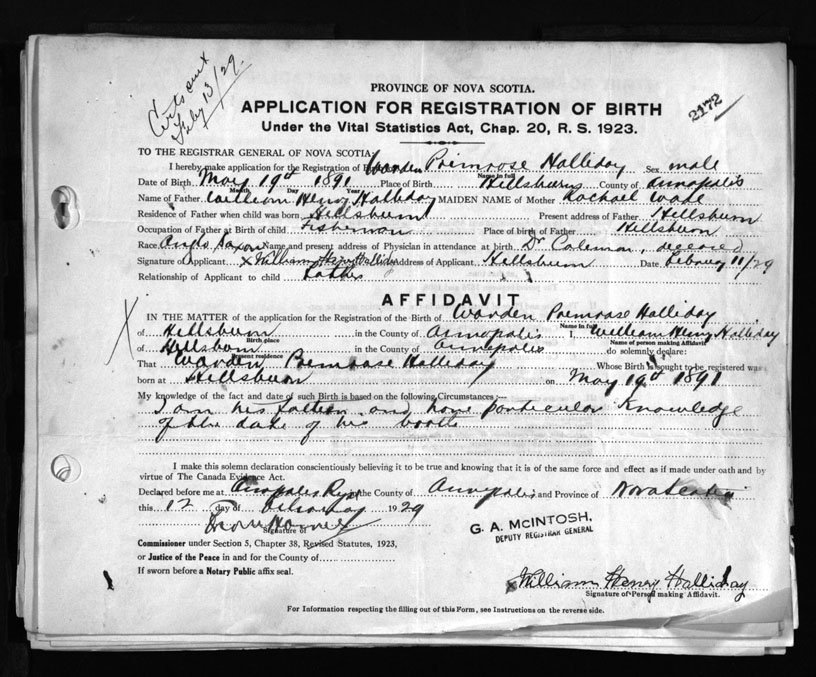 Certs sent
Feby 13/29.
PROVINCE OF NOVA SCOTIA.
APPLICATION FOR REGISTRATION OF BIRTH
2172
Under the Vital Statistics Act, Chap. 20, R. S. 1923.
TO THE REGISTRAR GENERAL OF NOVA SCOTIA:
I hereby make application for the Registration of Birth Warden Primrose Halliday Sex male
Name in full
Date of Birth May 19th 1891 Place of Birth Hillsburn County of Annapolis
Month Day Year
Name of Father William Henry Halliday MAIDEN NAME of Mother Rachael Wade
Residence of Father when child was born Hillsburn Present address of Father Hillsburn
Occupation of Father at Birth of child Fisherman Place of birth of Father Hillsburn
Race Anglo Saxon Name and present address of Physician in attendance at birth Dr Coleman, deceased
Signature of Applicant x William Henry Halliday Address of Applicant Hillsburn Date February 11/29
Relationship of Applicant to child Father
AFFIDAVIT
IN THE MATTER of the application for the Registration of the Birth of Warden Primrose Halliday
Name in full
of Hillsburn in the County of Annapolis I, William Henry Halliday
Birth place Name of person making Affidavit
of Hillsburn in the County of Annapolis do solemnly declare:
Present residence
That Warden Primrose Halliday Whose Birth is sought to be registered was
born at Hillsburn on May 19th 1891
My knowledge of the fact and date of such Birth is based on the following Circumstances:
I am his father and have particular knowledge
of the date of his
I make this solemn declaration conscientiously believing it to be true and knowing that it is of the same force and effect as if made under oath and by
virtue of The Canada Evidence Act.
Declared before me at Annapolis Royal in the County of Annapolis and Province of Nova Scotia
this 12 day of February 1929
Signature of
G. A. McINTOSH,
DEPUTY REGISTRAR GENERAL
Commissioner under Section 5, Chapter 38, Revised Statutes, 1923,
or Justice of the Peace in and for the County of
If sworn before a Notary Public affix seal.
x William Henry Halliday
Signature of Person making Affidavit.
For Information respecting the filling out of this Form, see Instructions on the reverse side.